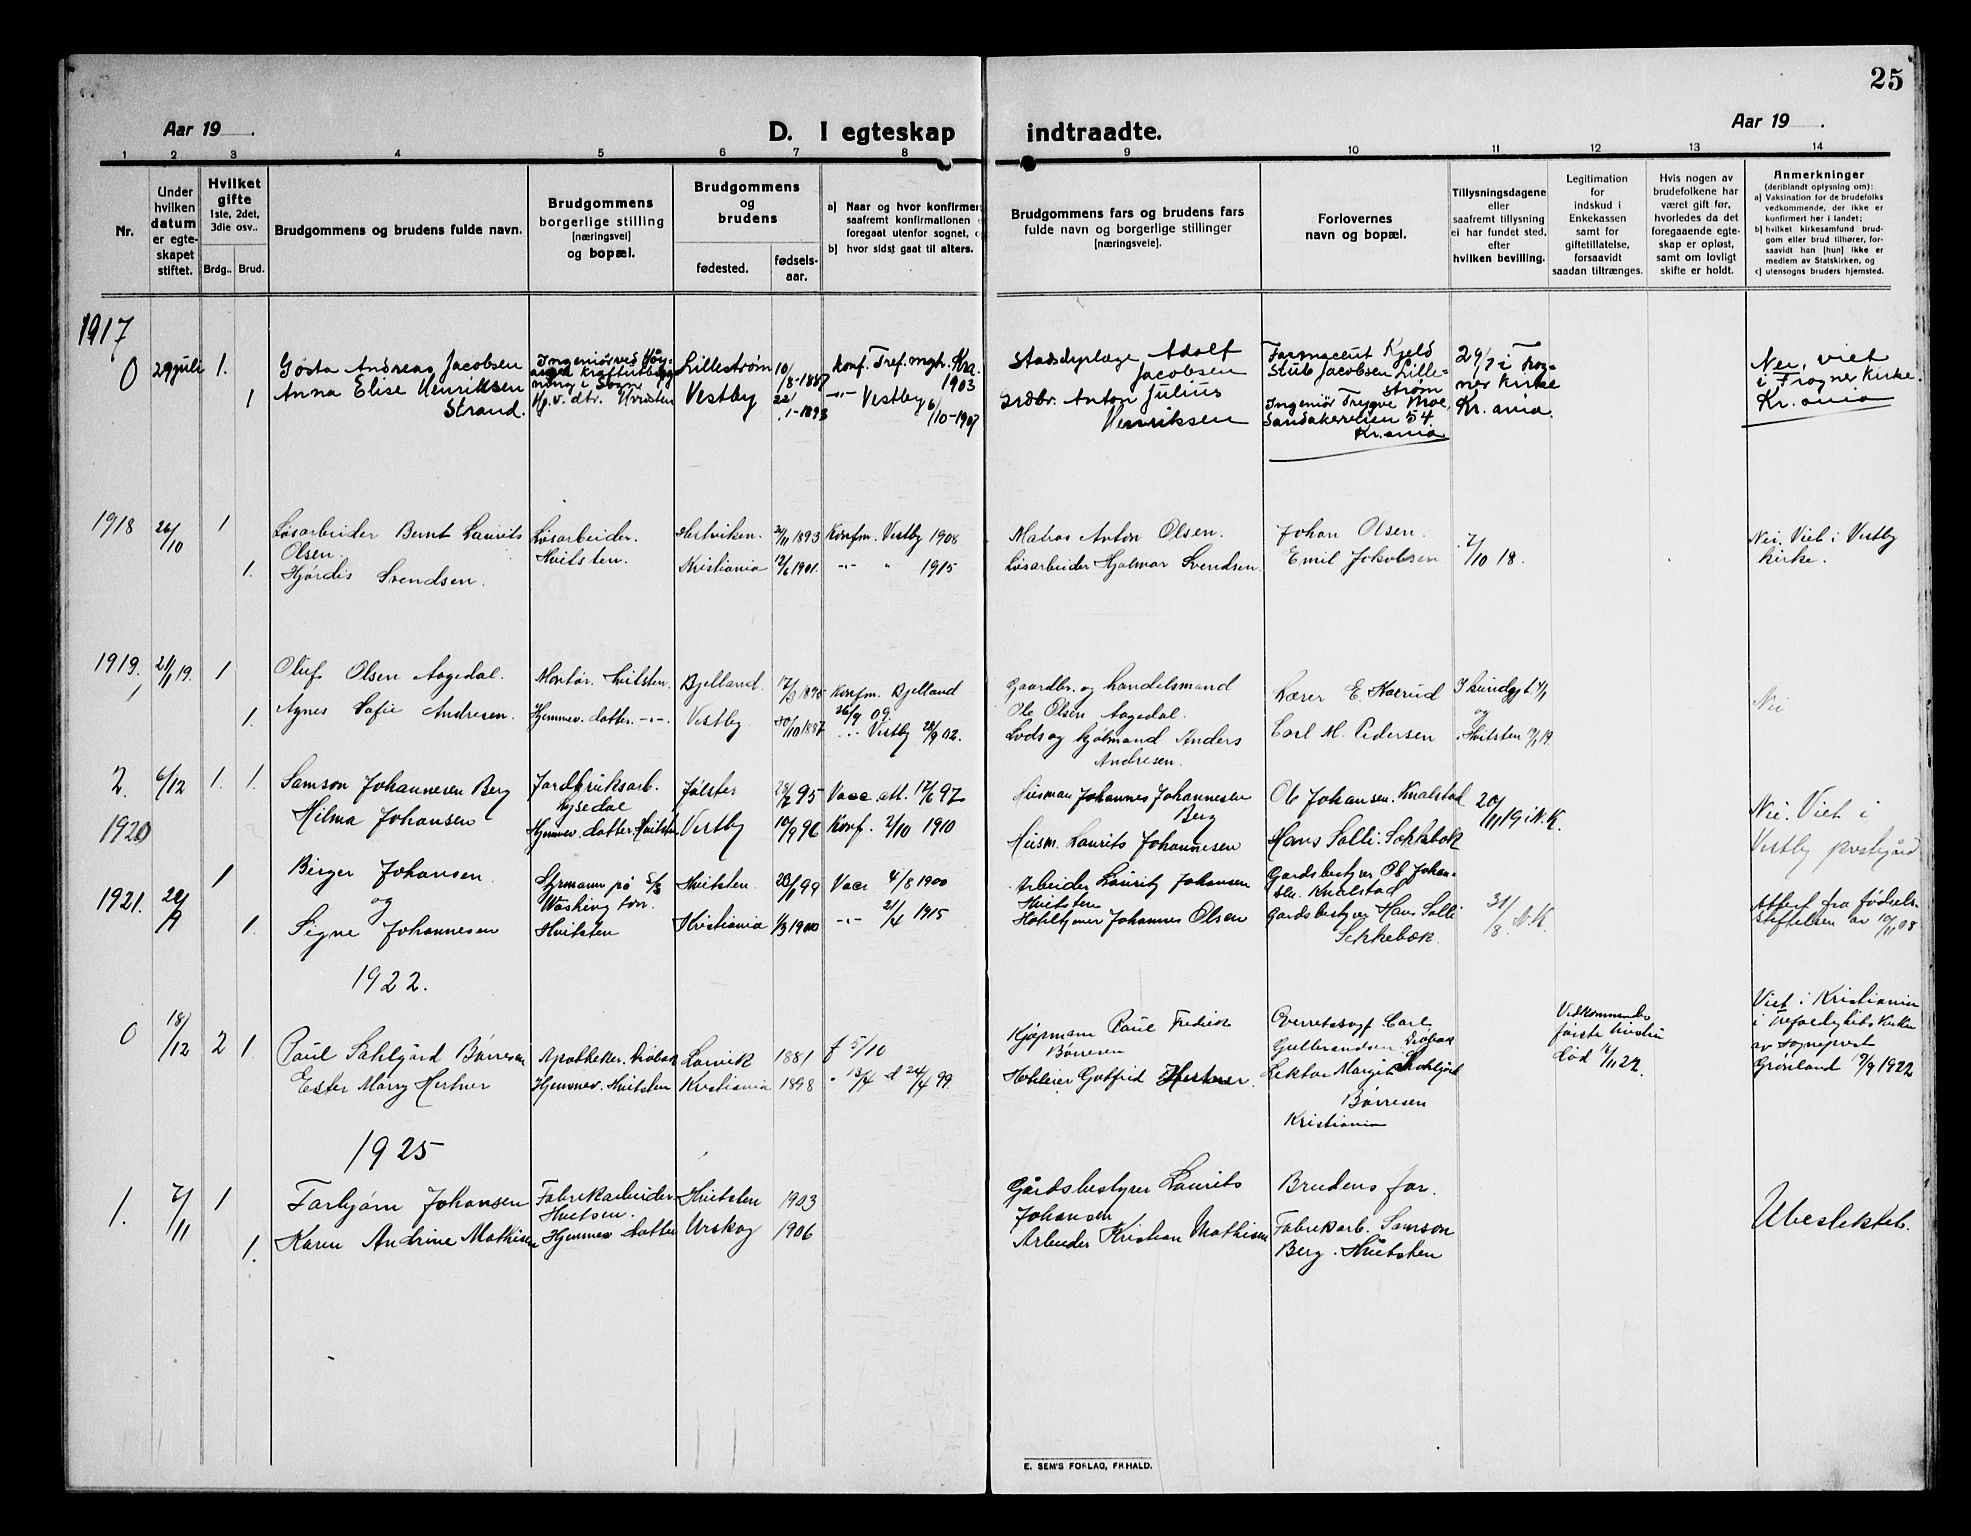 25
Aar 19 . D. I egteskap indtraadte. Aar 19 .
1 2 3 4 5 6 7 8 9 10 11 12 13 14
Nr.
Under
hvilken
datum
er egte-
skapet
stiftet.
Hvilket
gifte
1ste, 2det,
3die osv..
Brdg.. Brud.
Brudgommens og brudens fulde navn.
Brudgommens
borgerlige stilling
(næringsvei)
og bopæl.
Brudgommens
og
brudens
fødested.
fødsels-
aar.
a) Naar og hvor konfirmert
saafremt konfirmationen
foregaat utenfor sognet,
b) hvor sidst gaat til alters.
Brudgommens fars og brudens fars
fulde navn og borgerlige stillinger
(næringsveie).
Forlovernes
navn og bopæl.
Tillysningsdagene
eller
saafremt tillysning
ei har fundet sted,
efter
hvilken bevilling.
Legitimation
for
indskud i
Enkekassen
samt for
giftetillatelse,
forsaavidt
saadan tiltrænges.
Hvis nogen av
brudefolkene har
været gift før,
hvorledes da det
foregaaende egte-
skap er opløst,
samt om lovligt
skifte er holdt.
Anmerkninger
(deriblandt oplysning om):
a) Vaksination for de brudefolks
vedkommende, der ikke er
konfirmert her i landet;
b) hvilket kirkesamfund brud-
gom eller brud tilhører, for-
saavidt han (hun) ikke er
medlem av Statskirken, og
c) utensogns bruders hjemsted.
1917
0 29 juli 1.
Gösta Andreas Jacobsen
1 Anna Elise Henriksen
Strand.
Ingeniør ved Høy-
kraftutbyg-
ning i Sogn
Hj.v. dtr. Hvitsten
Lillestrøm 10/8-1887
Vestby 22/1-1893
Konf. Tref. mgh. Kra.
1903
-"- Vestby 6/10-1907
Adolf
Jacobsen
Grdbr. Anton Julius
Henriksen
Farmaceut Kjeld
Stub Jacobsen Lille-
strøm
Ingeniør Trygve Moe,
Sandakerveien 54
Kr.ania
29/7 i Frog-
ner Kirke
Kr.ania.
Nei, viet
i Frogner Kirke.
Kr.ania
1918 26/10 1
Løsarbeider Bernt Laurits
Olsen.
1. Hjørdis Svendsen.
Løsarbeider.
Hvitsten.
Hvitsten. 1893
Kristiania 12/6 1901.
Konfm. Vestby 1908
-"- " 1915
Matros Anton Olsen.
Løsarbeider Hjalmar Svendsen
Johan Olsen.
Emil Jakobsen
7/10 18.
Nei. Viet i Vestby
kirke.
1919. 21/1 19. 1
Oluf Olsen Aagedal.
1. Agnes Sofie Andresen.
Montør. Hvitsten.
Hjemmev. datter. -"-
Bjelland.
Vestby 30/10 1887
Konfm. Bjelland
26/9 09.
-"- Vestby 28/9 02.
Gaardbr. og handelsmand
Ole Olsen Aagedal.
Lods og Anders
Andresen.
Lærer E. Kolrud
Carl M. Pedersen
og
Hvitsten 19.
Nei
2. 6/12 1. 1.
Samson Johannesen Berg
Hilma Johansen
Jordbruksarb.
Hjemmev. datter. Hvitsten
Jølster 95
Vestby 10/9 96
Vacc. att. 17/6 97
Konf. 2/10 1910
Husman Johannes Johannesen
Berg
Husm. Laurits Johannesen
Ole Johansen. Knalstad
Hans Solli. Sokkebæk
20/11 19 i N.K.
Nei. Viet i
Vestby prestegård
1920
1
Birger Johansen
og
1921. 24/9 1. Signe Johannesen
Styrmann på S/S
Washington.
Hvitsten
Hvitsten. 23/1 99
Kristiania 1/3 1900
Vacc 4/8 1900
-"- 21/4 1915
Arbeider Lauritz Johansen
Hvitsten
Johannes Olsen
Gardsbestyrer Ole Johan-
sen. Knalstad
Gardsbestyrer Hans Solli
Sokkebæk.
31/8 N.K.
Attest fra fødsels-
stiftelsen av 10/11 08
1922.
0 18/12 2 1.
Paul Sahlgård Børresen
Ester Mary Hertner
Apotheker. Drøbak
Hjemmev. Hvitsten
Larvik 1881
Kristiania 1898
f 5/10
" 13/4 d 24/4 99.
Kjøpmann Paul Fredrik
Børresen
Hotelleier Gotfrid Hertner.
Overretssagf. Carl
Gulbrandsen. Drøbak
Lektor Margit Sahlgård
Børresen
Kristiania
Vedkommendes
første hustru
død
Viet i Kristiania
i Trefoldighets kirke
av sogneprest
Grønland 1922
1925
1. 7/11 1
Torbjørn Johansen
1. Karen Andrine Mathisen
Fabrikarbeider.
Hvitsten.
Hjemmev. datter
Hvitsten 1903
Urskog 1906
Gårdsbestyrer Laurits
Johansen
Arbeider Kristian Mathisen
Brudens far.
Fabrikarb. Samson
Berg. Hvitsten
Ubeslektet.
E. SEM'S FORLAG, FR.HALD.